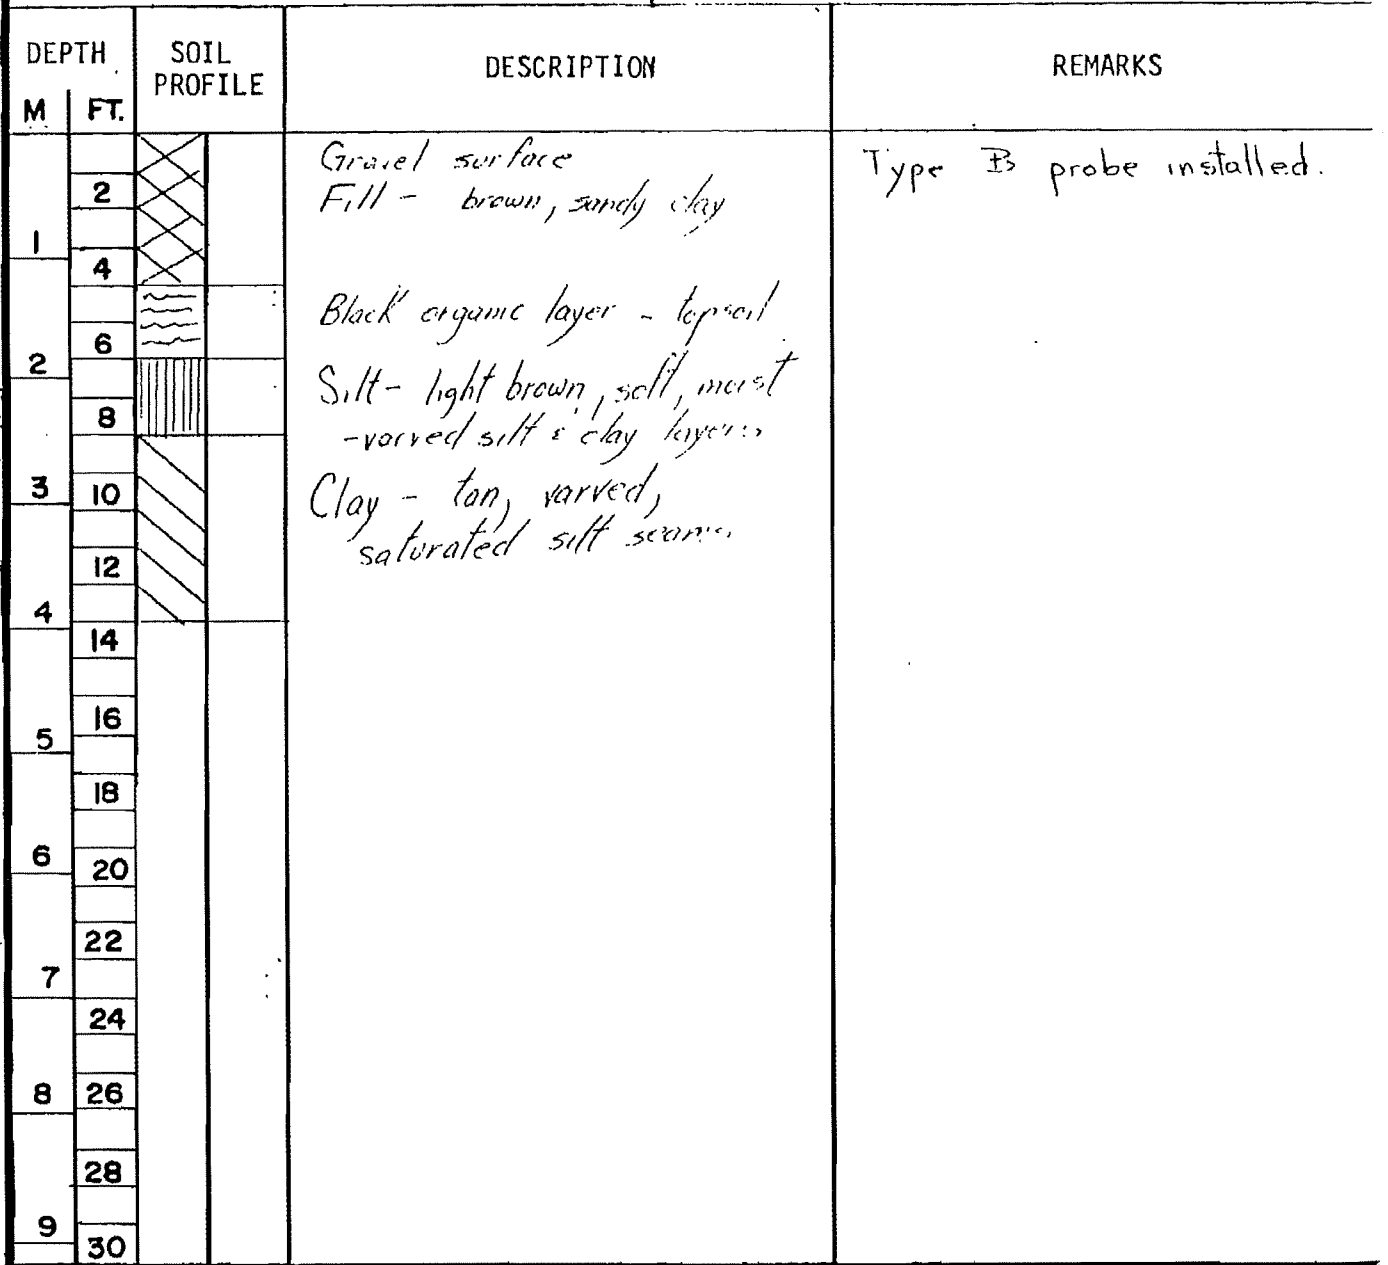 DEPTH
SOIL PROFILE
DESCRIPTION
REMARKS
M
FT.
Gravel surface
Type B probe installed.
Fill - brown, sandy clay
2
1
4
Black organic layer - topsoil
6
2
Silt - light brown, soft, moist
8
-varved silt & clay layers
3
10
Clay - tan, varved,
saturated silt seams
12
4
14
16
5
18
6
20
22
7
24
8
26
28
9
30